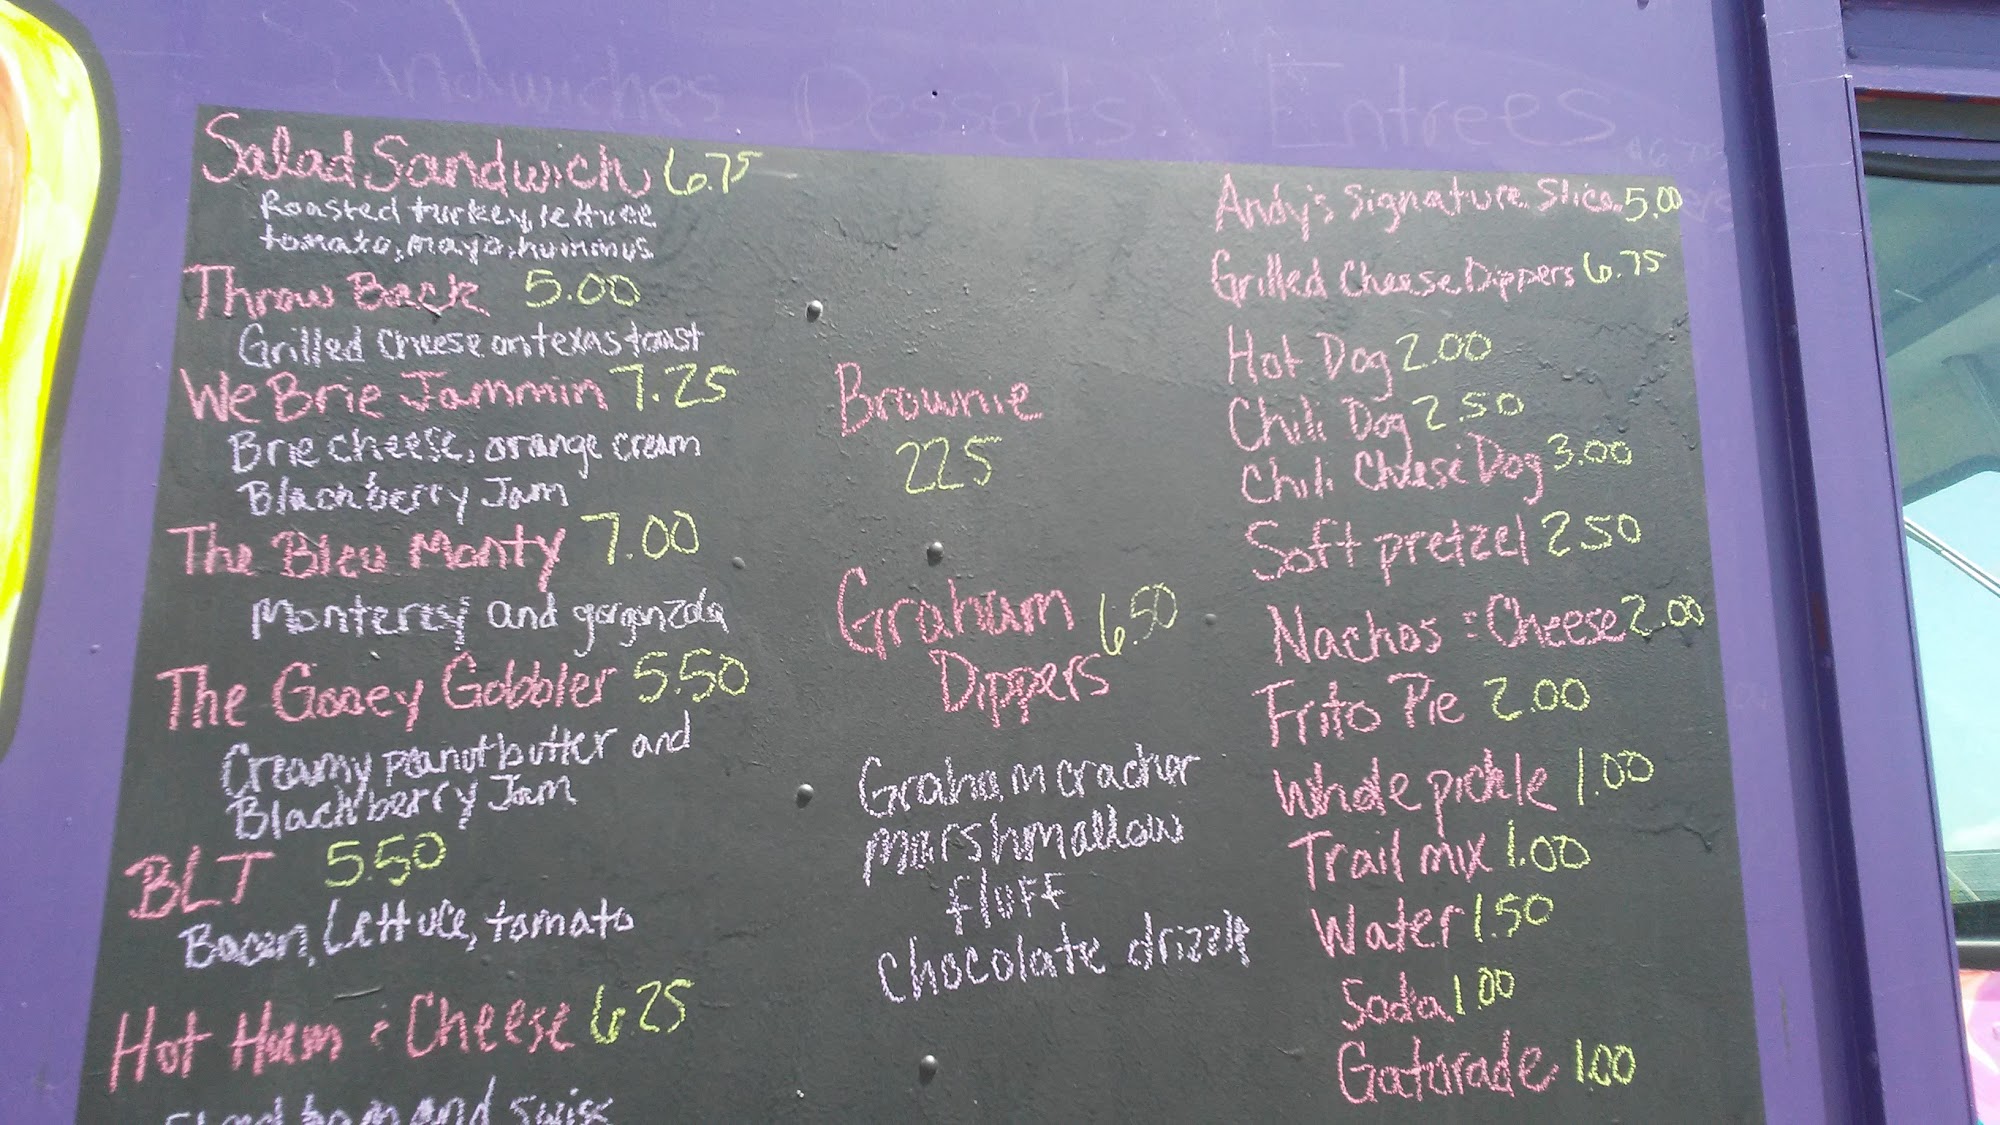 Sandwiches Desserts Entrees
Salad Sandwich 6.75
Roasted turkey, lettuce
tomato, mayo, hummus
Throw Back 5.00
Grilled cheese on texas toast
We Brie Jammin 7.25
Brie cheese, orange cream
Blackberry Jam
The Bleu Monty 7.00
Monterey and gorgonzola
The Gooey Gobbler 5.50
Creamy peanut butter and
Blackberry Jam
BLT 5.50
Bacon, Lettuce, tomato
Hot Ham & Cheese 6.25
ham and swiss
Brownie
225
Graham 6.50
Dippers
Graham cracker
marshmallow
fluff
chocolate drizzle
Andy's Signature Slice 5.00
Grilled Cheese Dippers 6.75
Hot Dog 2.00
Chili Dog 2.50
Chili Cheese Dog 3.00
Soft pretzel 2.50
Nachos & Cheese 2.00
Frito Pie 2.00
Whole pickle 1.00
Trail mix 1.00
Water 1.50
Soda 1.00
Gatorade 1.00